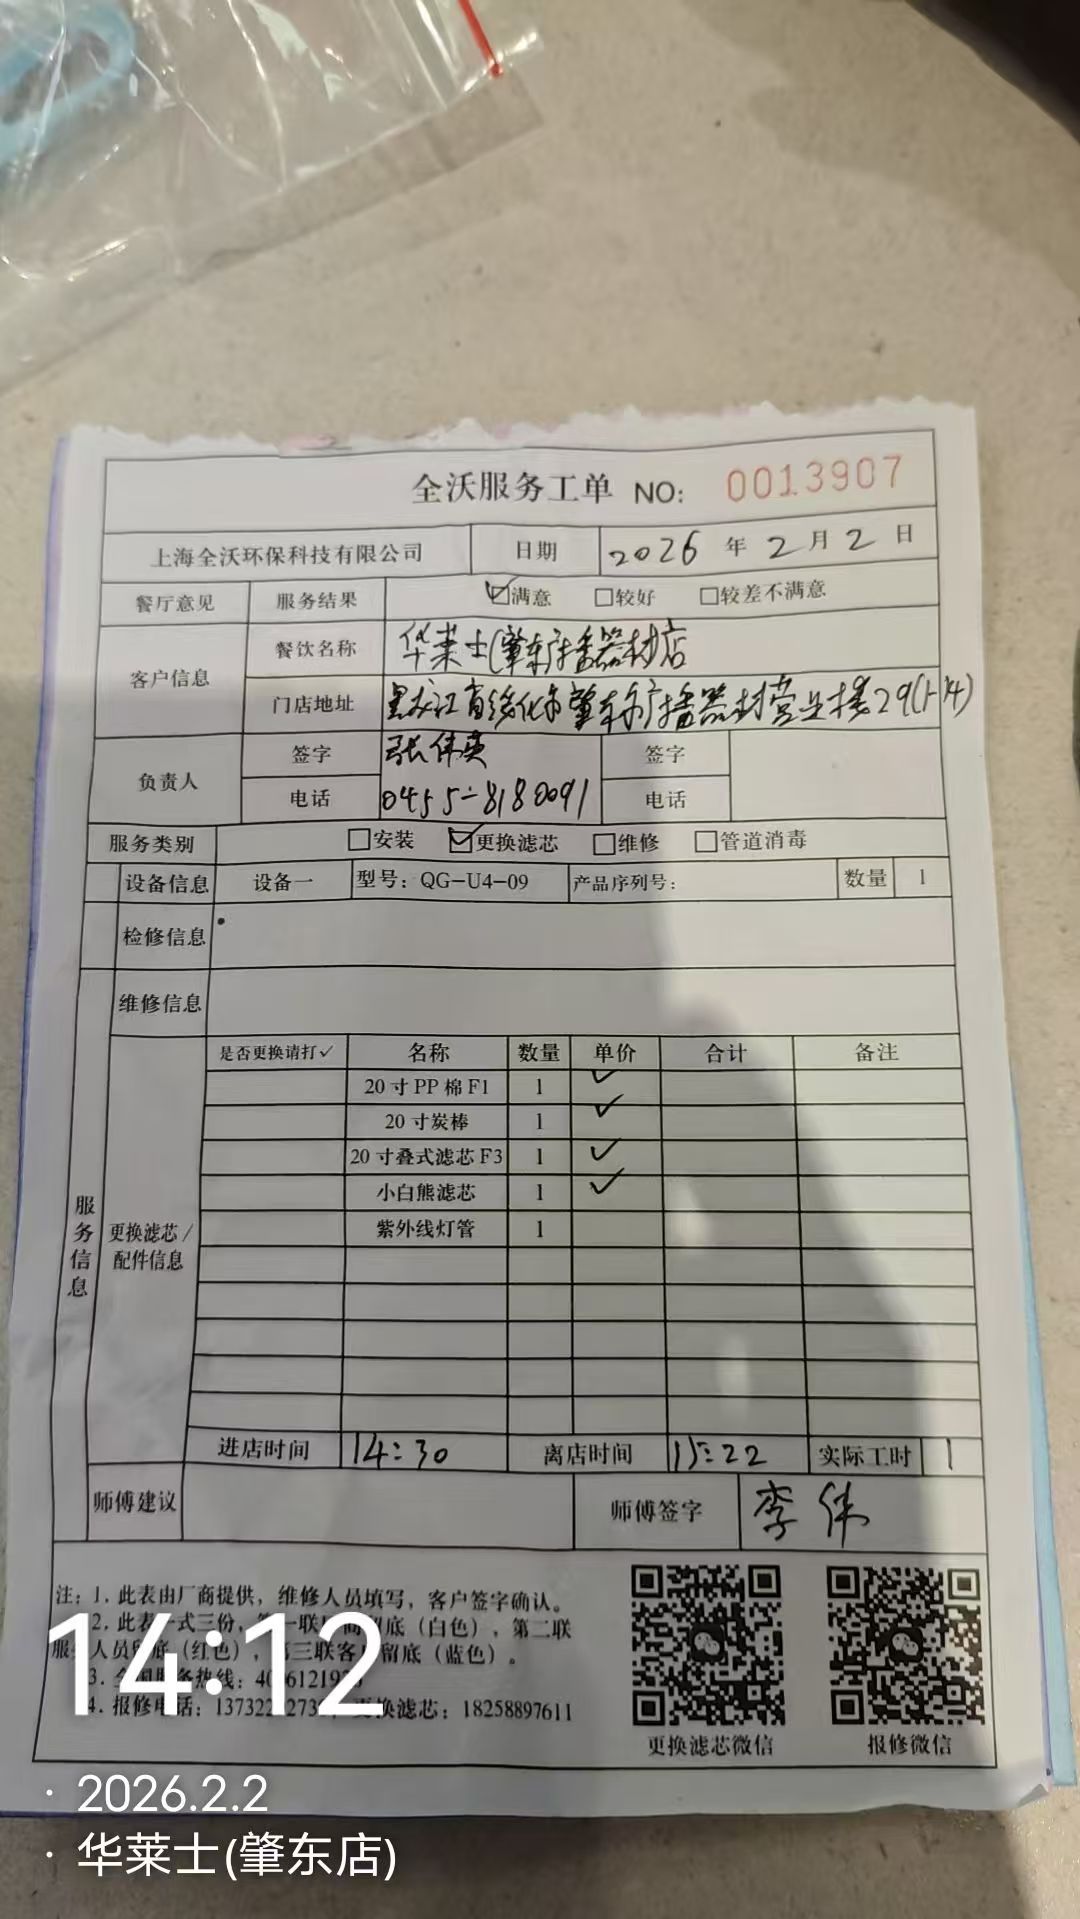 全沃服务工单 NO: 0013907
上海全沃环保科技有限公司 日期 2026 年 2 月 2 日
餐厅意见 服务结果 ☑满意 □较好 □较差不满意
客户信息 餐饮名称 华莱士(肇东广播器材店
门店地址 黑龙江省绥化市肇东市广播器材营业楼29(1-14)
负责人 签字 张伟英 签字
电话 0455-8180091 电话
服务类别 □安装 ☑更换滤芯 □维修 □管道消毒
设备信息 设备一 型号：QG-U4-09 产品序列号： 数量 1
检修信息
维修信息
服务信息
更换滤芯/配件信息
是否更换请打✓ 名称 数量 单价 合计 备注
20寸PP棉F1 1 ✓
20寸炭棒 1 ✓
20寸叠式滤芯F3 1 ✓
小白熊滤芯 1 ✓
紫外线灯管 1
进店时间 14:30 离店时间 15:22 实际工时 1
师傅建议 师傅签字 李伟
注：1. 此表由厂商提供，维修人员填写，客户签字确认。
2. 此表一式三份，第一联厂商留底（白色），第二联
服务人员留底（红色），第三联客户留底（蓝色）。
3. 全国服务热线：
4. 报修电话： 更换滤芯：18258897611
更换滤芯微信 报修微信
14:12
· 2026.2.2
· 华莱士(肇东店)